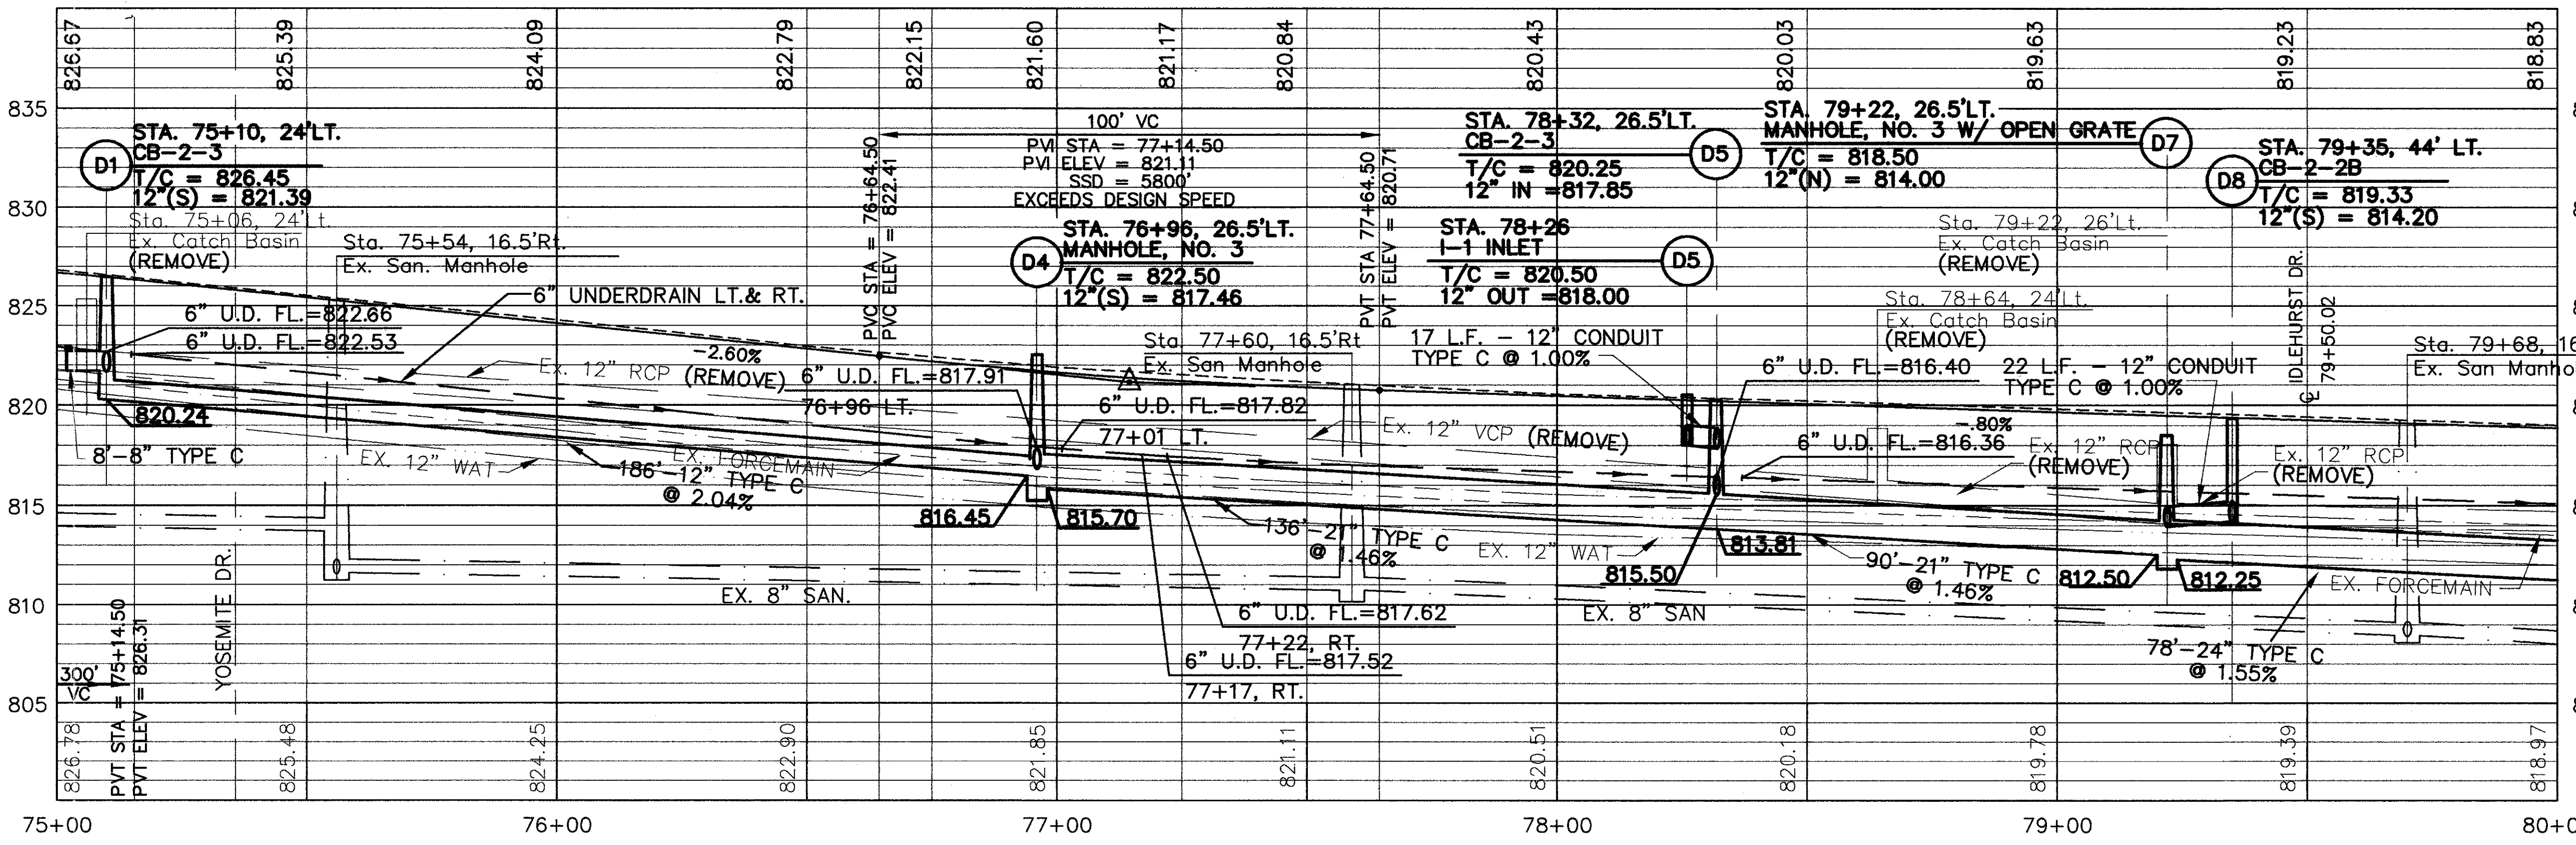 826.67
825.39
824.09
822.79
822.15
821.60
821.17
820.84
820.43
820.03
819.63
819.23
818.83
835
830
825
820
815
810
805
D1
STA. 75+10, 24'LT.
CB-2-3
T/C = 826.45
12"(S) = 821.39
Sta. 75+06, 24'Lt.
Ex. Catch Basin
(REMOVE)
Sta. 75+54, 16.5'Rt.
Ex. San. Manhole
6" UNDERDRAIN LT.& RT.
6" U.D. FL.=822.66
6" U.D. FL.=822.53
820.24
8'-8" TYPE C
EX. 12" WAT
Ex. 12" RCP (REMOVE)
-2.60%
PVC STA = 76+64.50
PVC ELEV = 822.41
100' VC
PVI STA = 77+14.50
PVI ELEV = 821.11
SSD = 5800'
EXCEEDS DESIGN SPEED
PVT STA 77+64.50
PVT ELEV = 820.71
D4
STA. 76+96, 26.5'LT.
MANHOLE, NO. 3
T/C = 822.50
12"(S) = 817.46
6" U.D. FL.=817.91
76+96 LT.
6" U.D. FL.=817.82
77+01 LT.
Sta. 77+60, 16.5'Rt
Ex. San Manhole
Ex. 12" VCP (REMOVE)
EX. FORCEMAIN
186'-12" TYPE C
@ 2.04%
816.45
815.70
136'-21" TYPE C
@ 1.46%
EX. 8" SAN.
6" U.D. FL.=817.62
77+22, RT.
6" U.D. FL.=817.52
77+17, RT.
STA. 78+32, 26.5'LT.
CB-2-3
T/C = 820.25
12" IN =817.85
D5
STA. 78+26
I-1 INLET
T/C = 820.50
12" OUT =818.00
D5
17 L.F. - 12" CONDUIT
TYPE C @ 1.00%
STA. 79+22, 26.5'LT.
MANHOLE, NO. 3 W/ OPEN GRATE
T/C = 818.50
12"(N) = 814.00
D7
D8
STA. 79+35, 44' LT.
CB-2-2B
T/C = 819.33
12"(S) = 814.20
Sta. 79+22, 26'Lt.
Ex. Catch Basin
(REMOVE)
Sta. 78+64, 24'Lt.
Ex. Catch Basin
(REMOVE)
6" U.D. FL.=816.40
22 L.F. - 12" CONDUIT
TYPE C @ 1.00%
6" U.D. FL.=816.36
-.80%
Ex. 12" RCP
(REMOVE)
Ex. 12" RCP
(REMOVE)
IDLEHURST DR.
℄ 79+50.02
Sta. 79+68, 16
Ex. San Manho
EX. 12" WAT
813.81
815.50
90'-21" TYPE C
@ 1.46%
812.50
812.25
EX. FORCEMAIN
EX. 8" SAN
78'-24" TYPE C
@ 1.55%
300'
VC
PVT STA = 75+14.50
PVT ELEV = 826.31
YOSEMITE DR.
826.78
825.48
824.25
822.90
821.85
821.11
820.51
820.18
819.78
819.39
818.97
75+00
76+00
77+00
78+00
79+00
80+0